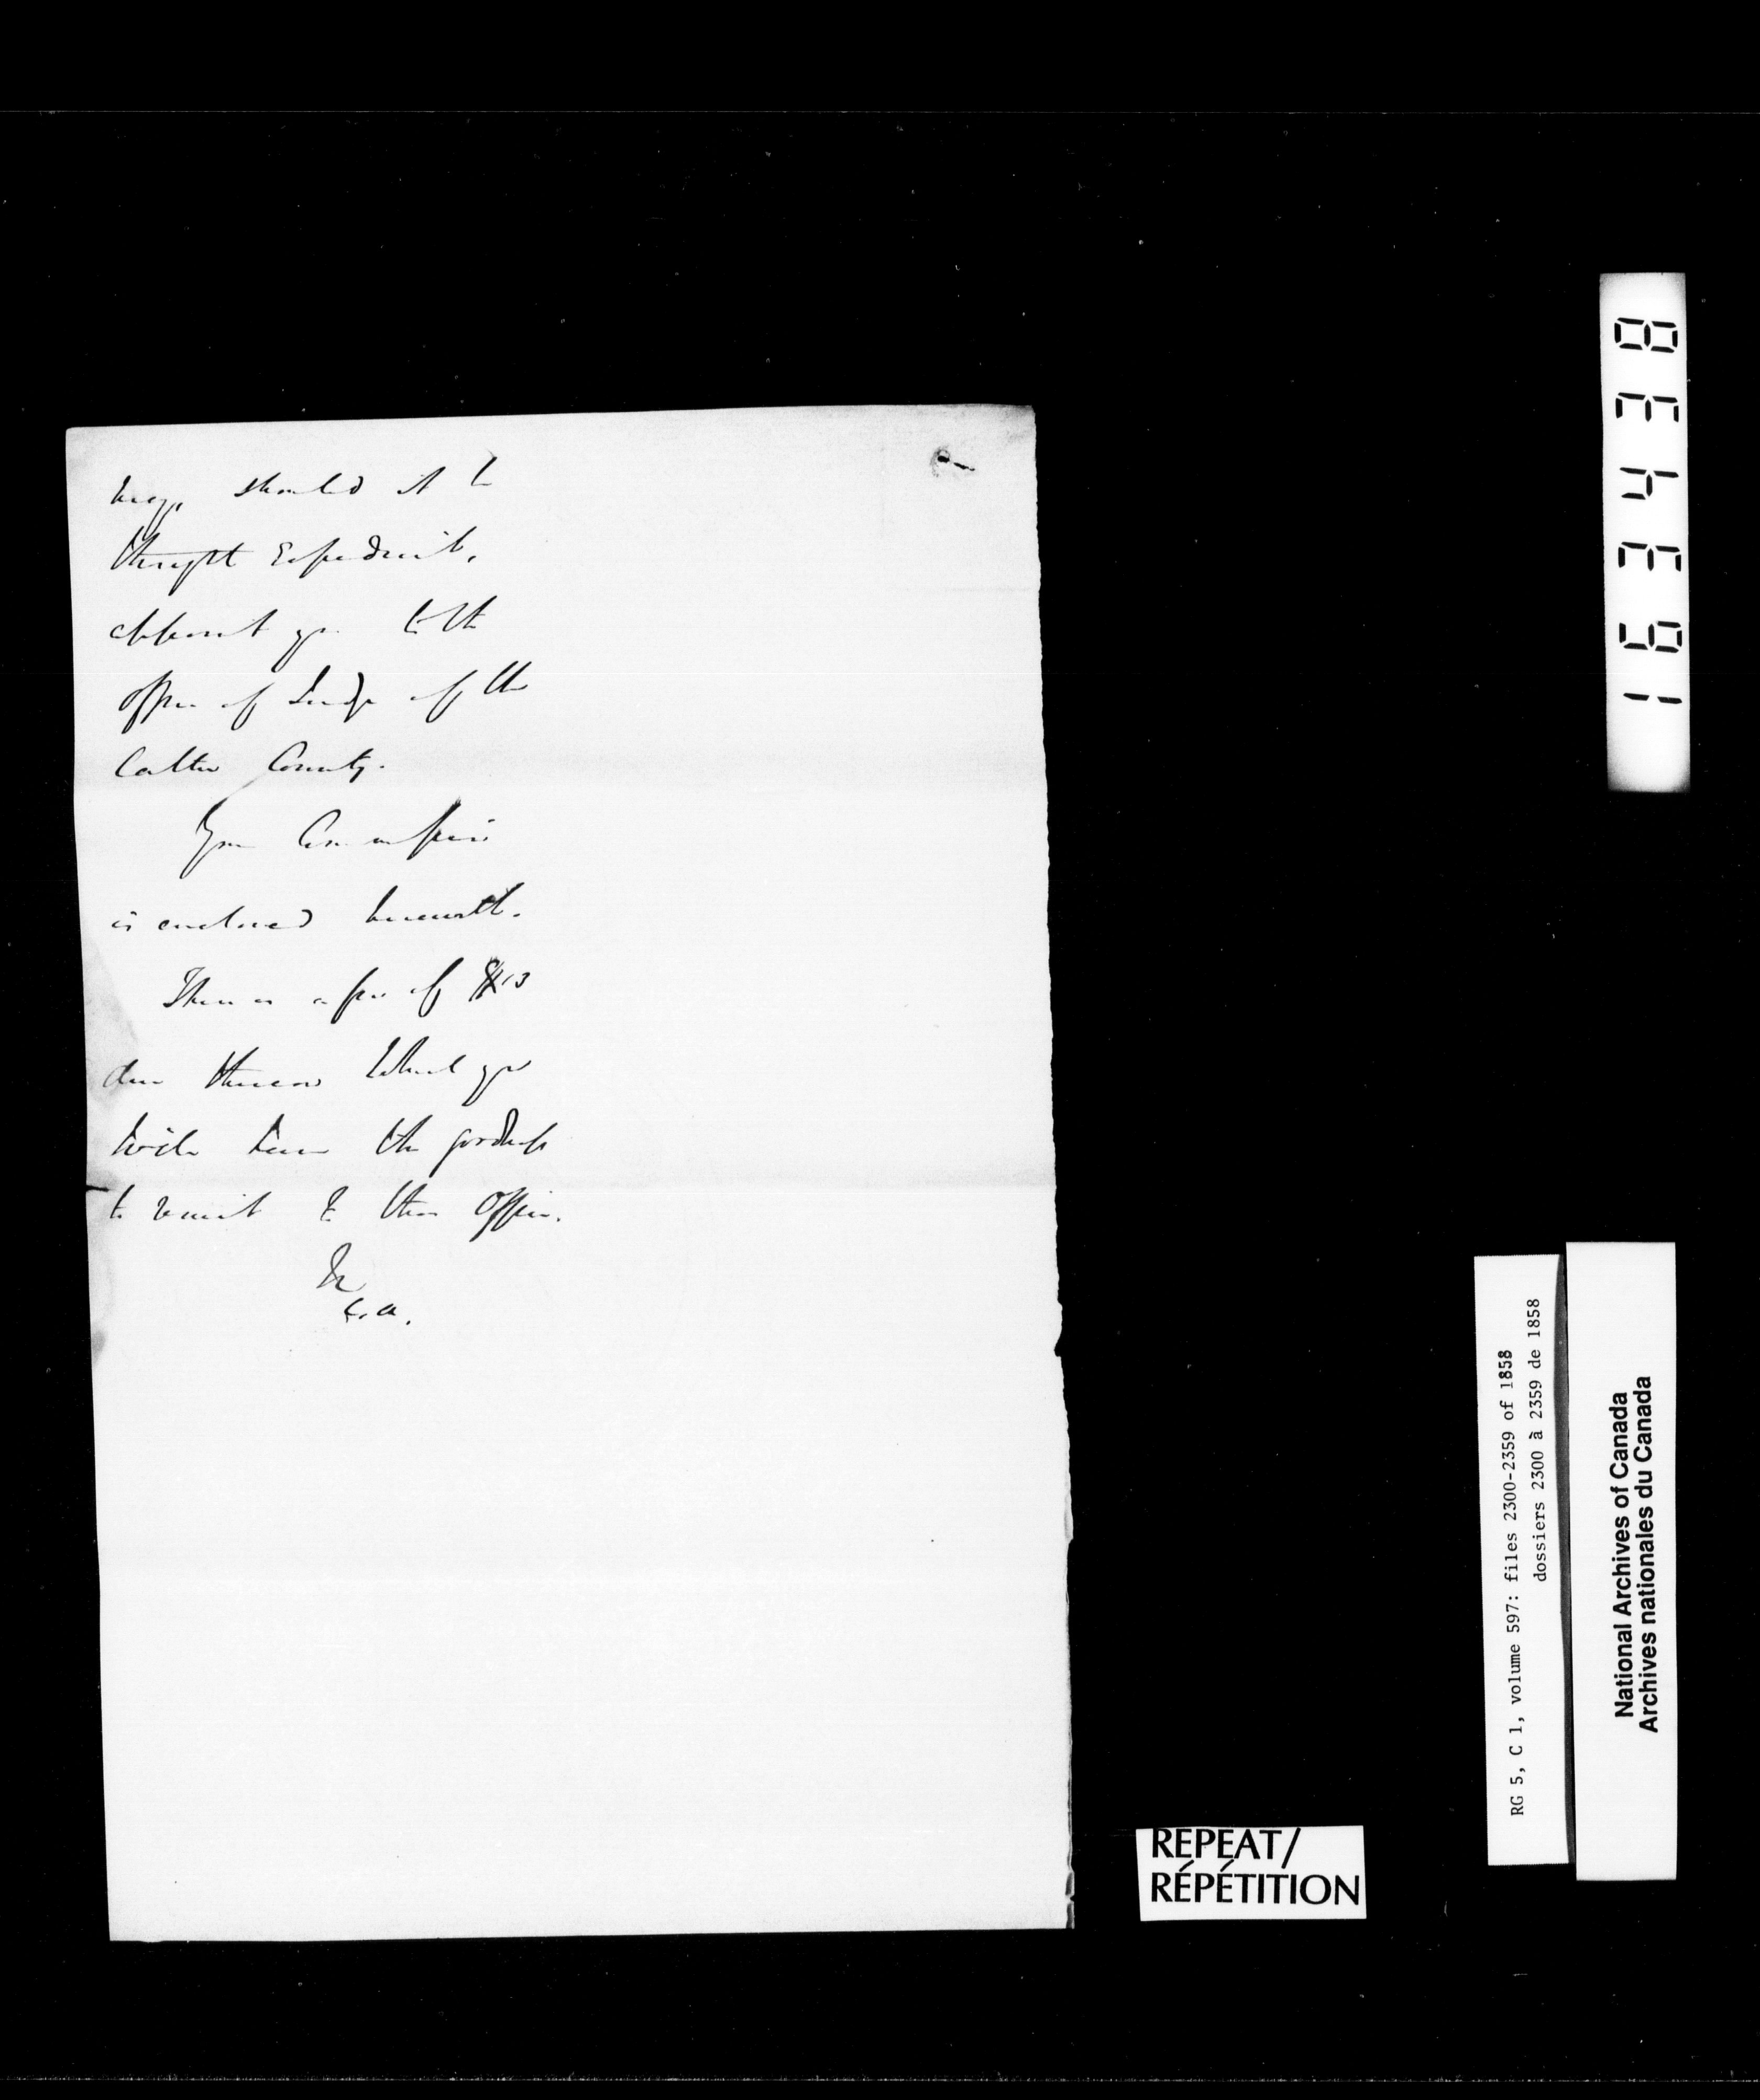 may, should it be
thought Expedient,
appoint you to the
office of Judge of the
latter County.
Your Commission
is enclosed herewith.
There is a fee of $13
due thereon which you
will have the goodness
to remit to this Office.
E. A.
REPEAT/
RÉPÉTITION
RG 5, C 1, volume 597: files 2300-2359 of 1858
dossiers 2300 à 2359 de 1858
National Archives of Canada
Archives nationales du Canada